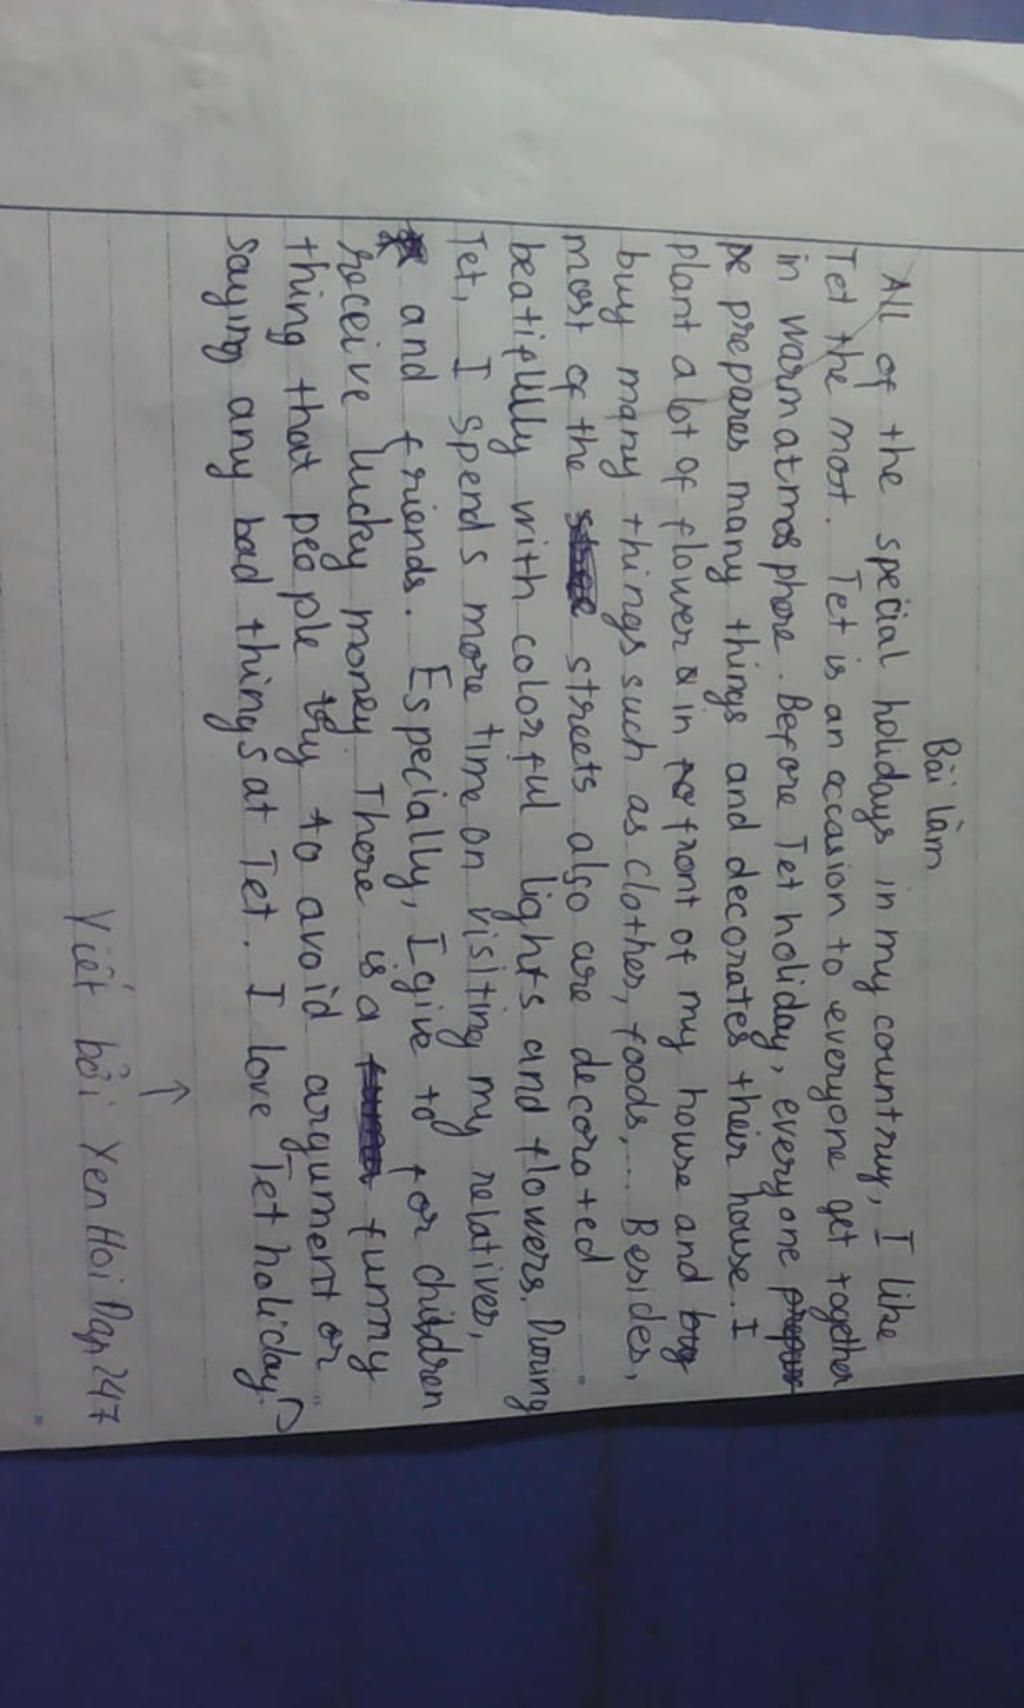 Bài làm
All of the special holidays in my country, I like
Tet the most. Tet is an occasion to everyone get together
in warm atmosphere. Before Tet holiday, everyone
prepares many things and decorates their house. I
plant a lot of flower in front of my house and
buy many things such as clother, foods,... Besides,
most of the streets also are decorated
beatifully with colorful lights and flowers. During
Tet, I spends more time on visiting my relatives,
and friends. Especially, I give to for children
receive lucky money. There is a funny
thing that people try to avoid argument or
saying any bad things at Tet. I love Tet holiday.
Viết bởi Yen Hoi Dap 247